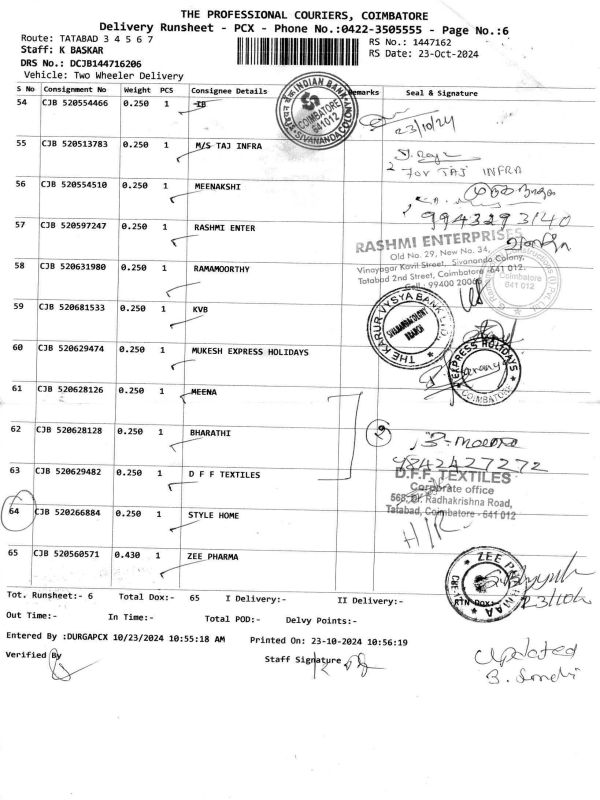 THE PROFESSIONAL COURIERS, COIMBATORE
Delivery Runsheet - PCX - Phone No.:0422-3505555 - Page No.:6
Route: TATABAD 3 4 5 6 7
RS No.: 1447162
Staff: K BASKAR
RS Date: 23-Oct-2024
DRS No.: DCJB144716206
Vehicle: Two Wheeler Delivery
S No Consignment No Weight PCS Consignee Details Remarks Seal & Signature
54 CJB 520554466 0.250 1 IB
INDIAN BANK
COIMBATORE
641012
SIVANANDA COLONY
23/10/24
55 CJB 520513783 0.250 1 M/S TAJ INFRA
For TAJ INFRA
56 CJB 520554510 0.250 1 MEENAKSHI
9943293140
57 CJB 520597247 0.250 1 RASHMI ENTER
RASHMI ENTERPRISES
Old No. 29, New No. 34,
Vinayagar Kovil Street, Sivananda Colony,
Tatabad 2nd Street, Coimbatore - 641 012.
Coimbatore
641 012
58 CJB 520631980 0.250 1 RAMAMOORTHY
59 CJB 520681533 0.250 1 KVB
THE KARUR VYSYA BANK LTD
SIVANANDA COLONY
BRANCH
60 CJB 520629474 0.250 1 MUKESH EXPRESS HOLIDAYS
EXPRESS HOLIDAYS
COIMBATORE
61 CJB 520628126 0.250 1 MEENA
62 CJB 520628128 0.250 1 BHARATHI
B-meena
9842427272
63 CJB 520629482 0.250 1 D F F TEXTILES
D.F.F. TEXTILES
Corporate office
568, Dr. Radhakrishna Road,
Tatabad, Coimbatore - 641 012
64 CJB 520266884 0.250 1 STYLE HOME
H/R
65 CJB 520560571 0.430 1 ZEE PHARMA
ZEE PHARMAA
23/10/24
Tot. Runsheet:- 6 Total Dox:- 65 I Delivery:- II Delivery:-
Out Time:- In Time:- Total POD:- Delvy Points:-
Entered By :DURGAPCX 10/23/2024 10:55:18 AM Printed On: 23-10-2024 10:56:19
Verified By
Staff Signature
updated